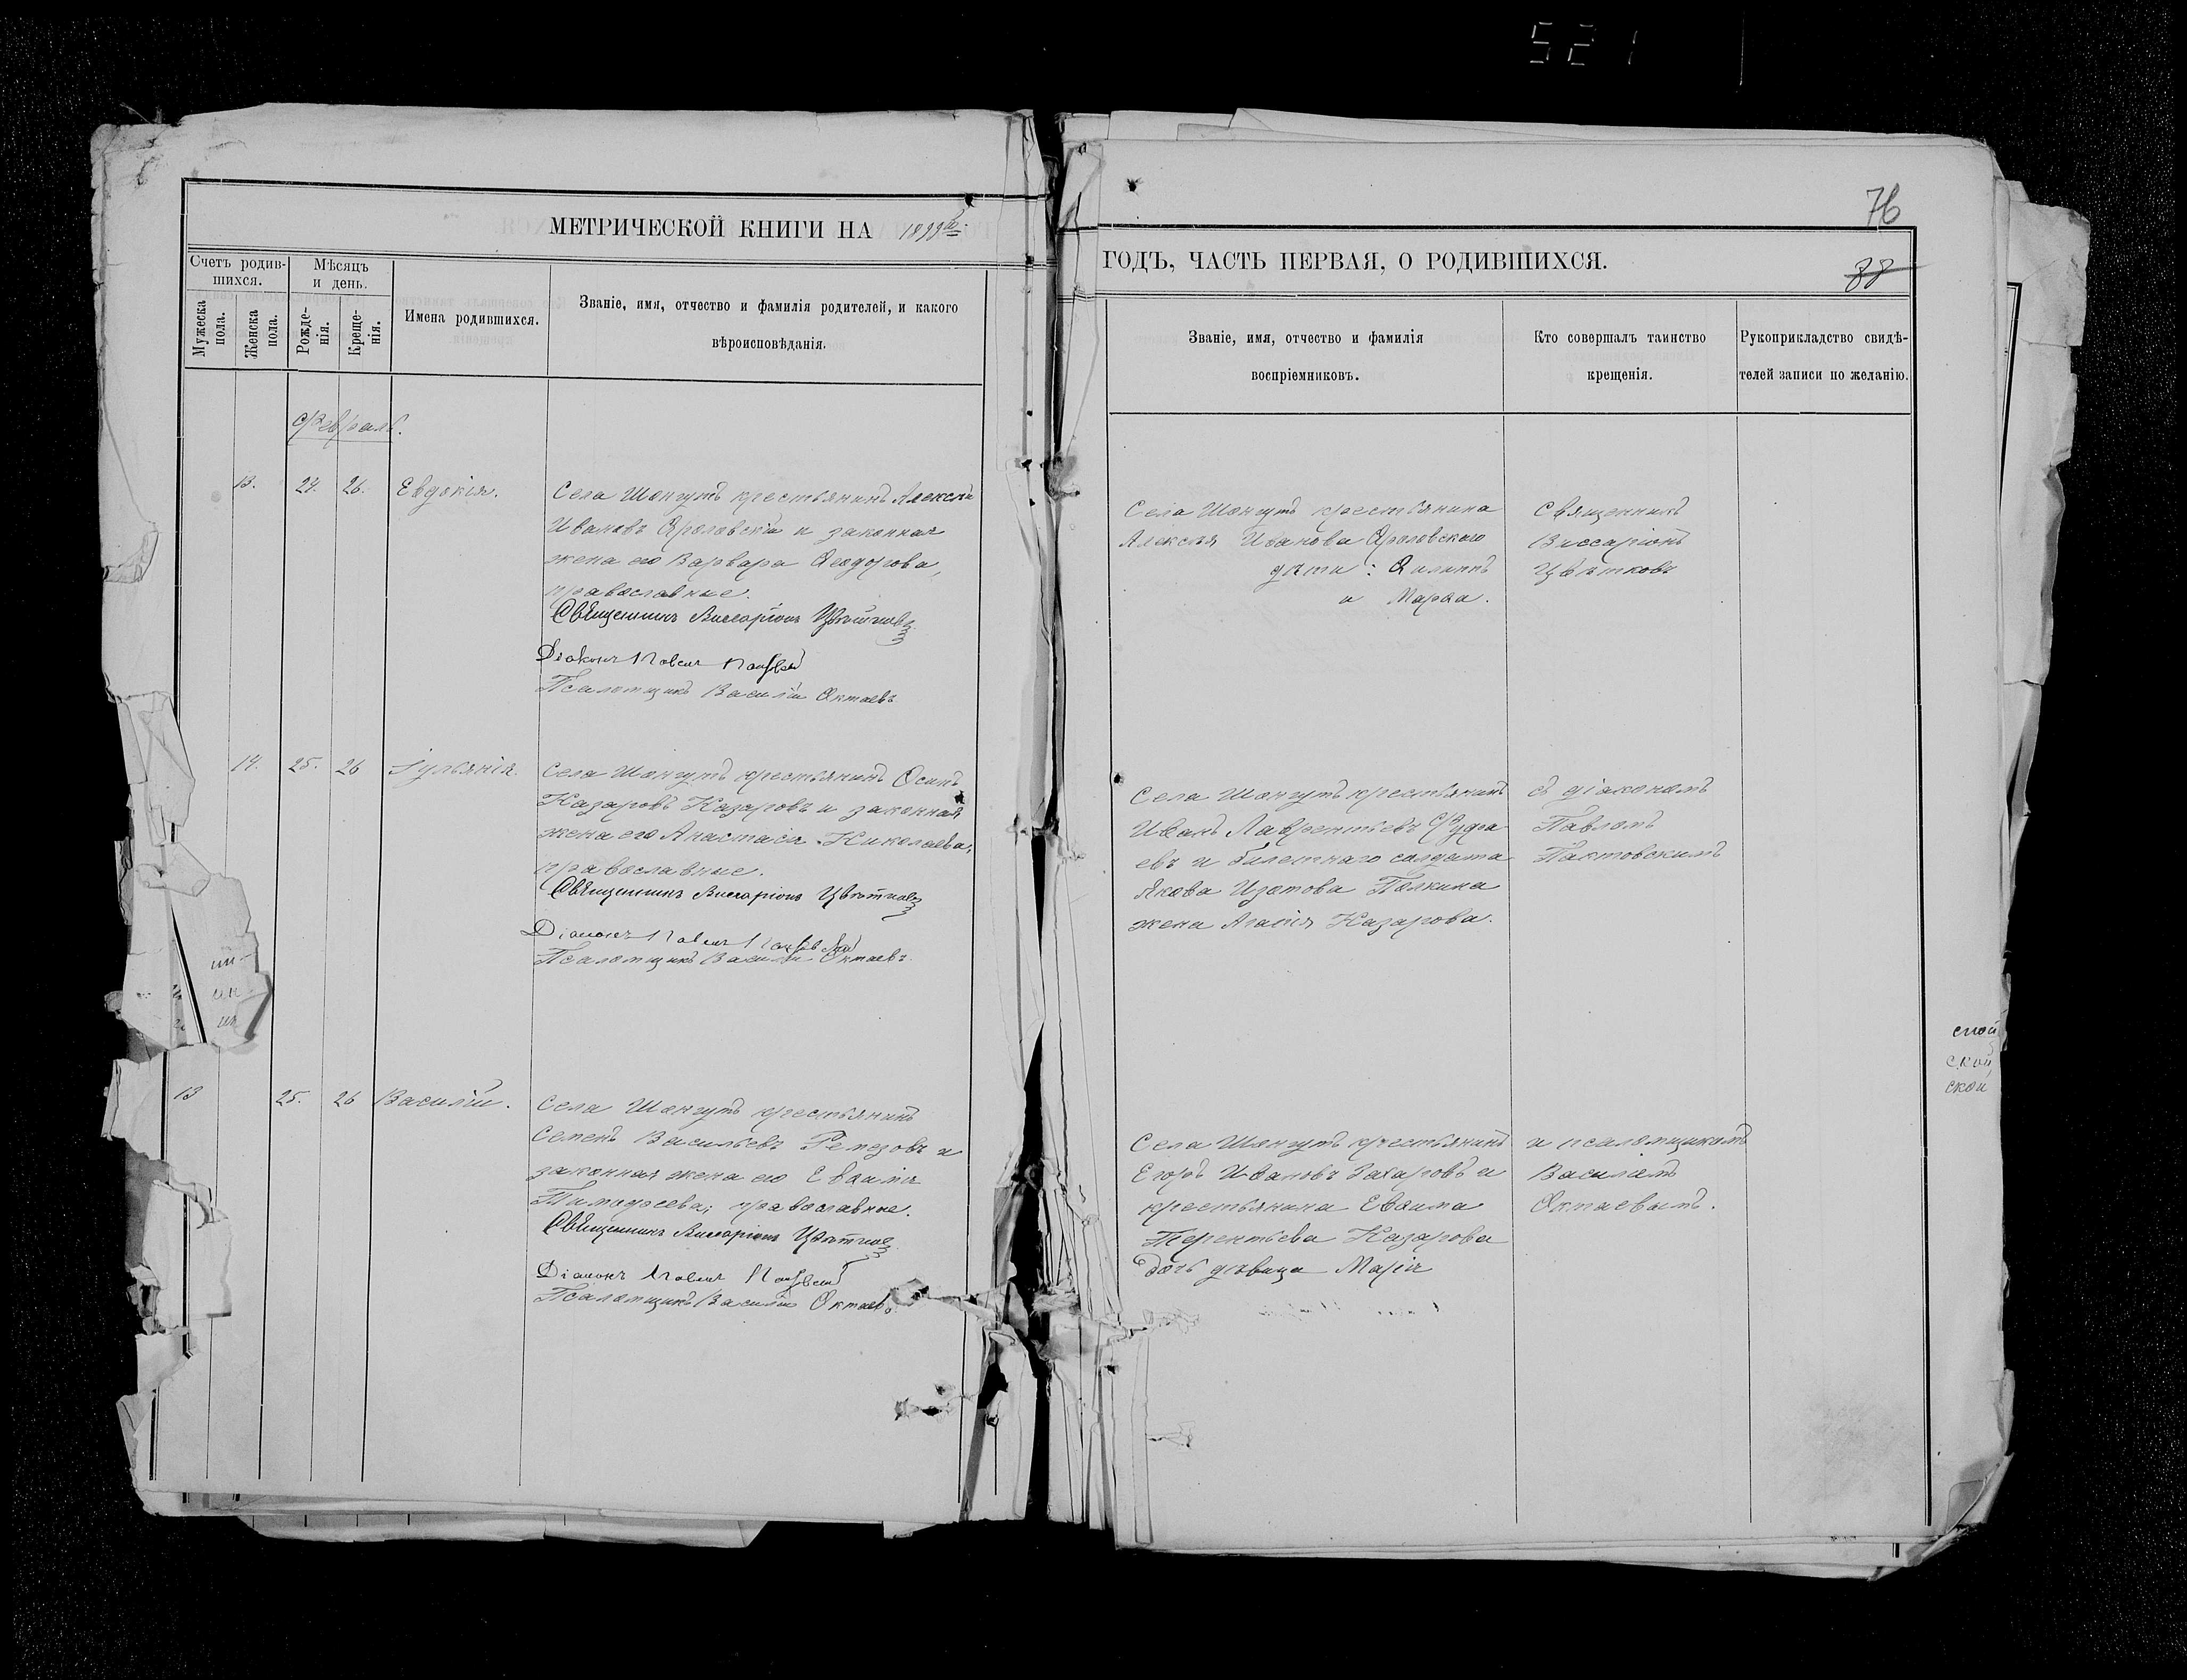 521
МЕТРИЧЕСКОЙ КНИГИ НА
Счетъ родив-
шихся.
Мѣсяцъ
и день.
Мужеска
пола.
Женска
пола.
Рожде-
нія.
Креще-
нія.
Имена родившихся.
Званіе, имя, отчество и фамилія родителей, и какого
вѣроисповѣданія.
Февраль.
13. 24. 26. Евдокія.
Села Шонгутъ крестьянинъ Алексѣй
Ивановъ и законная
жена его Варвара Ѳеодорова,
православные.
Священникъ Виссаріонъ Цвѣтковъ
Діаконъ Павелъ
Псаломщикъ Василій Октаевъ
14. 25. 26 Іульянія.
Села Шонгутъ крестьянинъ Осипъ
Назаровъ Назаровъ и законная
жена его Анастасія Николаева,
православные.
Священникъ Виссаріонъ Цвѣтковъ
Діаконъ Павелъ
Псаломщикъ Василій Октаевъ
13 25. 26 Василій.
Села Шонгутъ крестьянинъ
Семенъ Васильевъ Ремезовъ и
законная жена его Евѳимія
Тимоѳеева, православные.
Священникъ Виссаріонъ Цвѣтковъ
Діаконъ Павелъ
Псаломщикъ Василій Октаевъ
76
ГОДЪ, ЧАСТЬ ПЕРВАЯ, О РОДИВШИХСЯ.
88
Званіе, имя, отчество и фамилія
воспріемниковъ.
Кто совершалъ таинство
крещенія.
Рукоприкладство свидѣ-
телей записи по желанію.
Села Шонгутъ крестьянина
Алексѣя Иванова
дѣти: Филиппъ
и Марѳа.
Священникъ
Виссаріонъ
Цвѣтковъ
Села Шонгутъ крестьянинъ
Иванъ Лаврентьевъ
евъ и билетнаго солдата
Якова Изотова Полкина
жена Агаѳія Назарова.
съ діакономъ
Павломъ
Пактовскимъ
Села Шонгутъ крестьянинъ
Егоръ Ивановъ Захаровъ и
крестьянина Евѳима
Терентьева Назарова
дочь дѣвица Марія
и псаломщикомъ
Василіемъ
Октаевымъ.
ской
ской